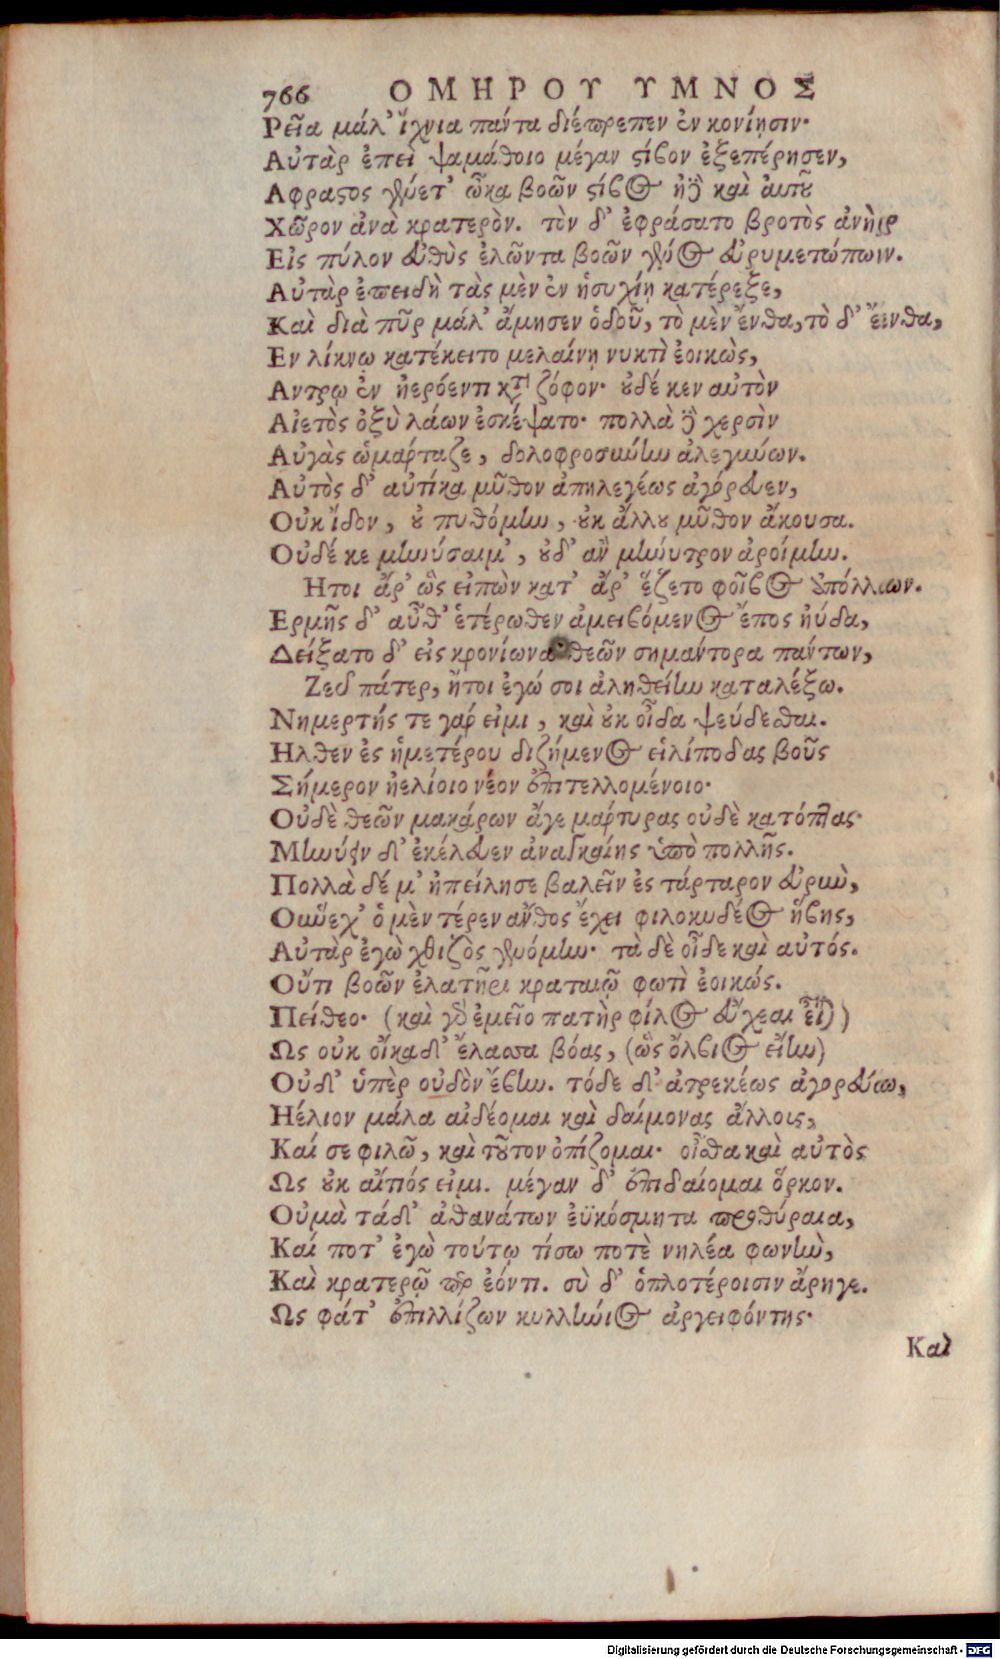 766 ΟΜΗΡΟΥ ΥΜΝΟΣ
Ρεῖα μάλ' ἴχνια πάντα διέπρεπεν ἐν κονίῃσιν·
Αὐτὰρ ἐπεὶ ψαμάθοιο μέγαν ϛίβον ἐξεπέρησεν,
Αφραϛος γένετ' ὦκα βοῶν ϛίβος ἠδὲ καὶ αὐτοῦ
Χῶρον ἀνὰ κρατερὸν. τὸν δ' ἐφράσατο βροτὸς ἀνὴρ
Εἰς πύλον εὐθὺς ἐλῶντα βοῶν γένος εὐρυμετώπων.
Αὐτὰρ ἐπειδὴ τὰς μὲν ἐν ἡσυχίῃ κατέρεξε,
Καὶ διὰ πῦρ μάλ' ἄμησεν ὁδοῦ, τὸ μὲν ἔνθα, τὸ δ' ἔνθα,
Εν λίκνῳ κατέκειτο μελαίνῃ νυκτὶ ἐοικὼς,
Αντρῳ ἐν ἠερόεντι κατὰ ζόφον· οὐδέ κεν αὐτὸν
Αἰετὸς ὀξὺ λάων ἐσκέψατο· πολλὰ δὲ χερσὶν
Αὐγὰς ὡμάρταζε, δολοφροσύνην ἀλεγύνων.
Αὐτὸς δ' αὐτίκα μῦθον ἀπηλεγέως ἀγόρευεν,
Οὐκ ἴδον, οὐ πυθόμην, οὐκ ἄλλου μῦθον ἄκουσα.
Οὐδέ κε μηνύσαιμ', οὐδ' ἂν μήνυτρον ἀροίμην.
Ητοι ἄρ' ὣς εἰπὼν κατ' ἄρ' ἕζετο φοῖβος ἀπόλλων.
Ερμῆς δ' αὖθ' ἑτέρωθεν ἀμειβόμενος ἔπος ηὔδα,
Δείξατο δ' εἰς κρονίωνα θεῶν σημάντορα πάντων,
Ζεῦ πάτερ, ἤτοι ἐγώ σοι ἀληθείην καταλέξω.
Νημερτής τε γάρ εἰμι, καὶ οὐκ οἶδα ψεύδεσθαι.
Ηλθεν ἐς ἡμετέρου διζήμενος εἰλίποδας βοῦς
Σήμερον ἠελίοιο νέον ἐπιτελλομένοιο·
Οὐδὲ θεῶν μακάρων ἄγε μάρτυρας οὐδὲ κατόπτας·
Μηνύειν δ' ἐκέλευεν ἀναγκαίης ὑπὸ πολλῆς.
Πολλὰ δέ μ' ἠπείλησε βαλεῖν ἐς τάρταρον εὐρὺν,
Οὕνεχ' ὁ μὲν τέρεν ἄνθος ἔχει φιλοκυδέος ἥβης,
Αὐτὰρ ἐγὼ χθιζὸς γενόμην· τὰ δὲ οἶδε καὶ αὐτός.
Οὔτι βοῶν ἐλατῆρι κραταιῷ φωτὶ ἐοικώς.
Πείθεο· (καὶ γὰρ ἐμεῖο πατὴρ φίλος εὔχεαι εἶναι)
Ως οὐκ οἴκαδ' ἔλασσα βόας, (ὣς ὄλβιος εἴην)
Οὐδ' ὑπὲρ οὐδὸν ἔβην. τόδε δ' ἀτρεκέως ἀγορεύω,
Ηέλιον μάλα αἰδέομαι καὶ δαίμονας ἄλλοις,
Καί σε φιλῶ, καὶ τοῦτον ὀπίζομαι· οἶσθα καὶ αὐτὸς
Ως οὐκ αἴτιός εἰμι. μέγαν δ' ἐπιδαίομαι ὅρκον.
Οὐμὰ τάδ' ἀθανάτων ἐϋκόσμητα προθύραια,
Καί ποτ' ἐγὼ τούτῳ τίσω ποτὲ νηλέα φωνὴν,
Καὶ κρατερῷ περ ἐόντι. σὺ δ' ὁπλοτέροισιν ἄρηγε.
Ως φάτ' ἐπιλλίζων κυλλήνιος ἀργειφόντης·
Καὶ
Digitalisierung gefördert durch die Deutsche Forschungsgemeinschaft - DFG